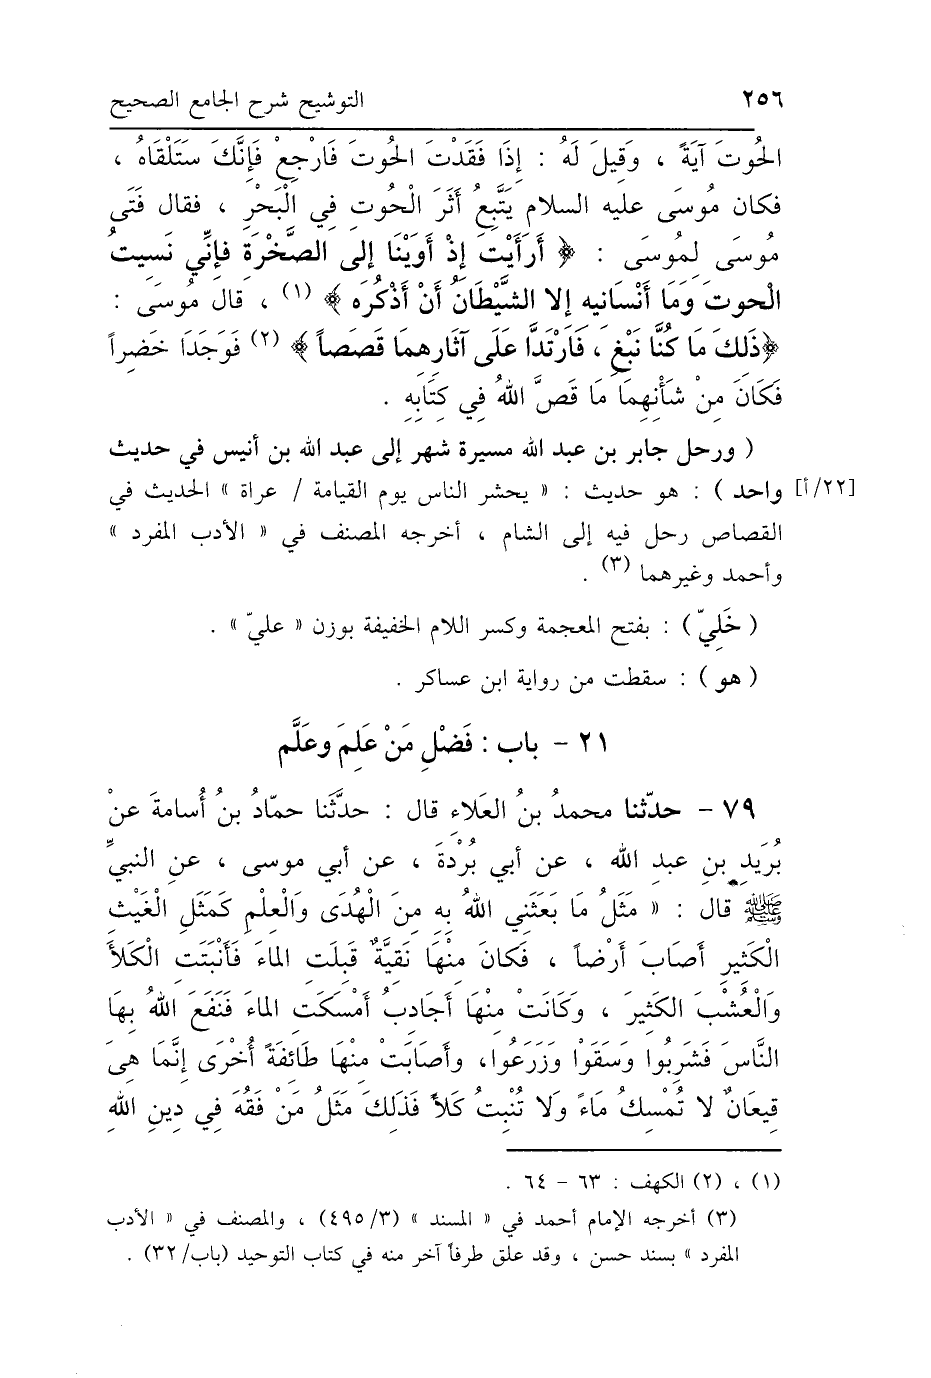 ٢٥٦ التوشيح شرح الجامع الصحيح
الحُوتَ آيَةً ، وَقِيلَ لَهُ : إِذَا فَقَدْتَ الحُوتَ فَارْجِعْ فَإِنَّكَ سَتَلْقَاهُ ،
فكان مُوسَى عليه السلام يَتَّبِعُ أَثَرَ الْحُوتِ فِي الْبَحْرِ ، فقال فَتَى
مُوسَى لِمُوسَى : ﴿ أَرَأَيْتَ إِذْ أَوَيْنَا إِلى الصَّخْرَةِ فإِنِّي نَسِيتُ
الْحوتَ وَمَا أَنْسَانِيهِ إلا الشَّيْطَانُ أَنْ أَذْكُرَه ﴾ (١) ، قال مُوسَى :
﴿ذَلِكَ مَا كُنَّا نَبْغِ ، فَارْتَدَّا عَلَى آثَارِهِما قَصَصاً ﴾ (٢) فَوَجَدَا خَضِراً
فَكَانَ مِنْ شَأْنِهِمَا مَا قَصَّ اللهُ فِي كِتَابِهِ .
( ورحل جابر بن عبد الله مسيرة شهر إلى عبد الله بن أنيس في حديث
[٢٢/أ] واحد ) : هو حديث : « يحشر الناس يوم القيامة / عراة » الحديث في
القصاص رحل فيه إلى الشام ، أخرجه المصنف في « الأدب المفرد »
وأحمد وغيرهما (٣) .
( خَلِيّ ) : بفتح المعجمة وكسر اللام الخفيفة بوزن « عليّ » .
( هو ) : سقطت من رواية ابن عساكر .
٢١ - باب : فَضْلِ مَنْ عَلِمَ وعَلَّم
٧٩ - حدّثنا محمدُ بنُ العَلَاءِ قال : حدَّثَنا حمّادُ بنُ أُسامةَ عنْ
بُرَيدِ بنِ عبدِ الله ، عن أبي بُرْدَةَ ، عن أبي موسى ، عنِ النبيِّ
ﷺ قال : « مَثَلُ مَا بَعَثَنِي اللهُ بِهِ مِنَ الْهُدَى وَالْعِلْمِ كَمَثَلِ الْغَيْثِ
الْكَثِيرِ أَصَابَ أَرْضاً ، فَكَانَ مِنْهَا نَقِيَّةٌ قَبِلَتِ الماءَ فَأَنْبَتَتِ الْكَلأَ
وَالْعُشْبَ الكَثِيرَ ، وَكَانَتْ مِنْهَا أَجَادِبُ أَمْسَكَتِ الماءَ فَنَفَعَ اللهُ بِهَا
النَّاسَ فَشَرِبُوا وَسَقَوْا وَزَرَعُوا، وأَصَابَتْ مِنْهَا طَائِفَةً أُخْرَى إِنَّمَا هِىَ
قِيعَانٌ لا تُمْسِكُ مَاءً وَلا تُنْبِتُ كَلأً فَذَلِكَ مَثَلُ مَنْ فَقُهَ فِي دِينِ اللهِ
(١) ، (٢) الكهف : ٦٣ - ٦٤ .
(٣) أخرجه الإمام أحمد في « المسند » (٤٩٥/٣) ، والمصنف في « الأدب
المفرد » بسند حسن ، وقد علق طرفاً آخر منه في كتاب التوحيد (باب/٣٢) .